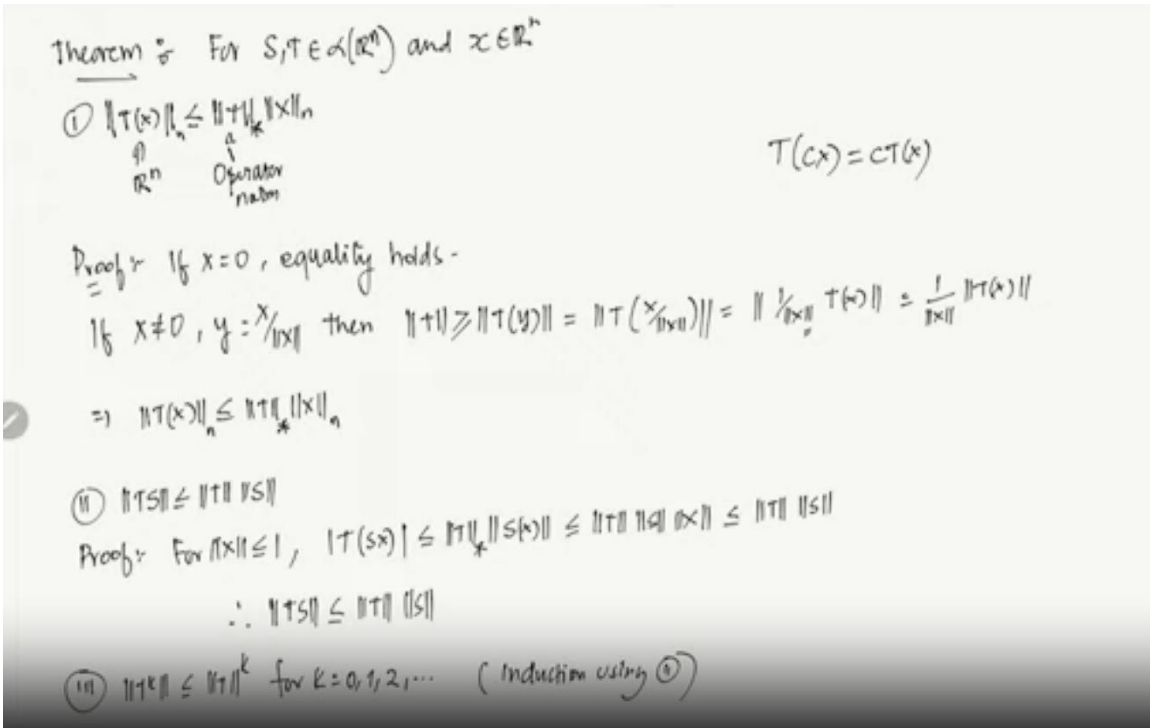 Theorem : For S,T ∈ L(ℝⁿ) and x ∈ ℝⁿ
① ‖T(x)‖ₙ ≤ ‖T‖⁎ ‖x‖ₙ
ℝⁿ Operator norm
T(cx) = cT(x)
Proof :- If x=0, equality holds.
If x≠0, y = x/‖x‖ then ‖T‖ ≥ ‖T(y)‖ = ‖T(x/‖x‖)‖ = ‖1/‖x‖ T(x)‖ = 1/‖x‖ ‖T(x)‖
⇒ ‖T(x)‖ₙ ≤ ‖T‖⁎ ‖x‖ₙ
(ii) ‖TS‖ ≤ ‖T‖ ‖S‖
Proof :- For ‖x‖ ≤ 1, |T(Sx)| ≤ ‖T‖⁎ ‖S(x)‖ ≤ ‖T‖ ‖S‖ ‖x‖ ≤ ‖T‖ ‖S‖
∴ ‖TS‖ ≤ ‖T‖ ‖S‖
(iii) ‖Tᵏ‖ ≤ ‖T‖ᵏ for k=0,1,2,... (induction using)